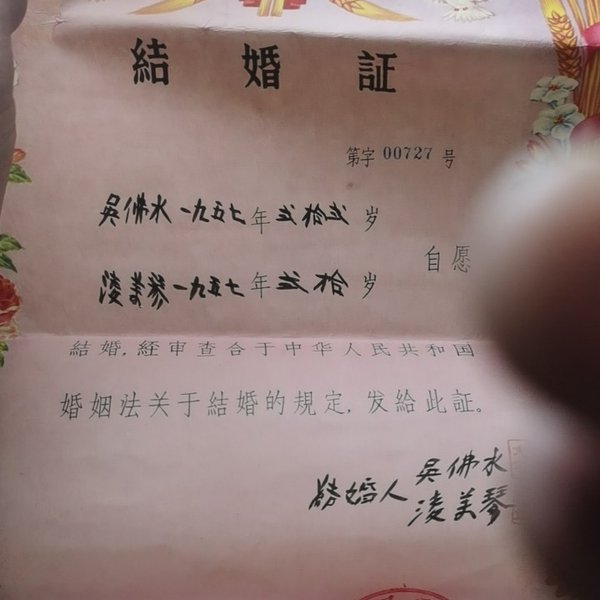 結婚証
第字 00727 号
吳佛水一九五七年弍拾弍岁
凌美琴一九五七年弍拾岁
自愿
結婚，経审查合于中华人民共和国
婚姻法关于結婚的規定，发給此証。
結婚人 吳佛水
凌美琴